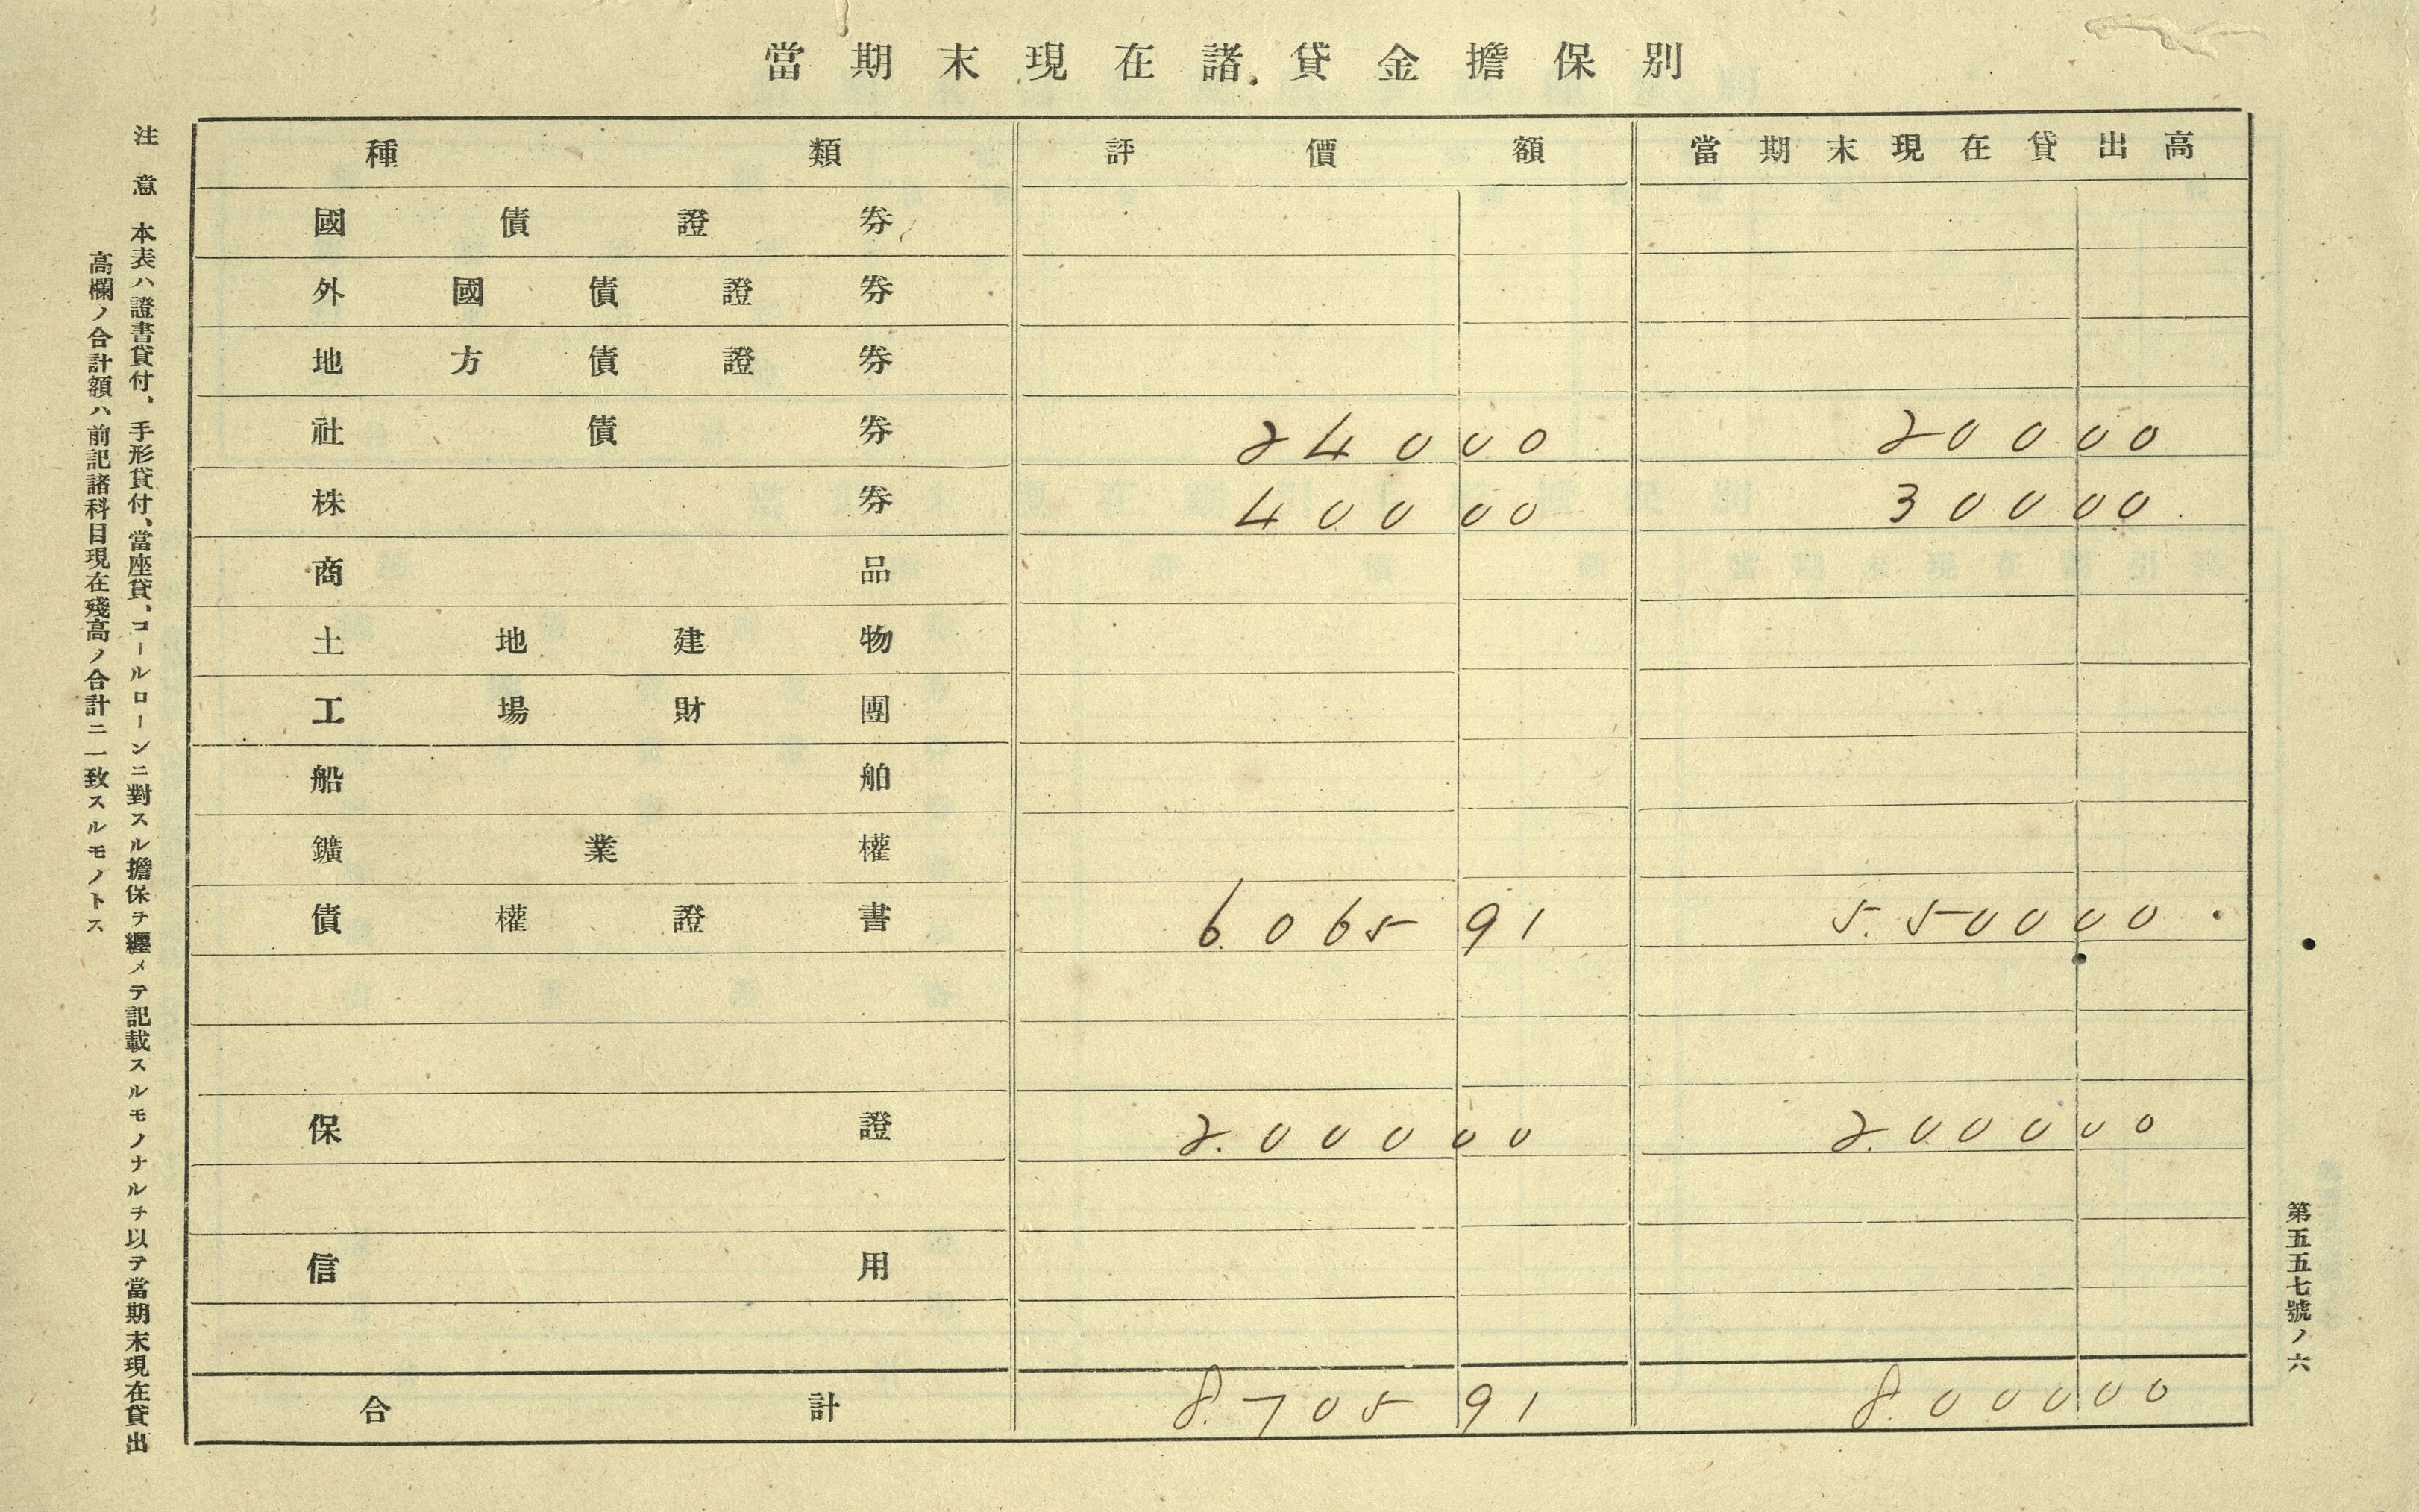 當期末現在諸貸金擔保別
種類 評價額 當期末現在貸出高
國債證券
外國債證券
地方債證券
社債券 240 00 200 00
株券 400 00 300 00
商品
土地建物
工場財團
船舶
鑛業權
債權證書 6.065 91 5.500 00
保證 2.000 00 2.000 00
信用
合計 8.705 91 8.000 00
注意 本表ハ證書貸付、手形貸付、當座貸、コールローンニ對スル擔保ヲ纒メテ記載スルモノナルヲ以テ當期末現在貸出
高欄ノ合計額ハ前記諸科目現在殘高ノ合計ニ一致スルモノトス
第五五七號ノ六